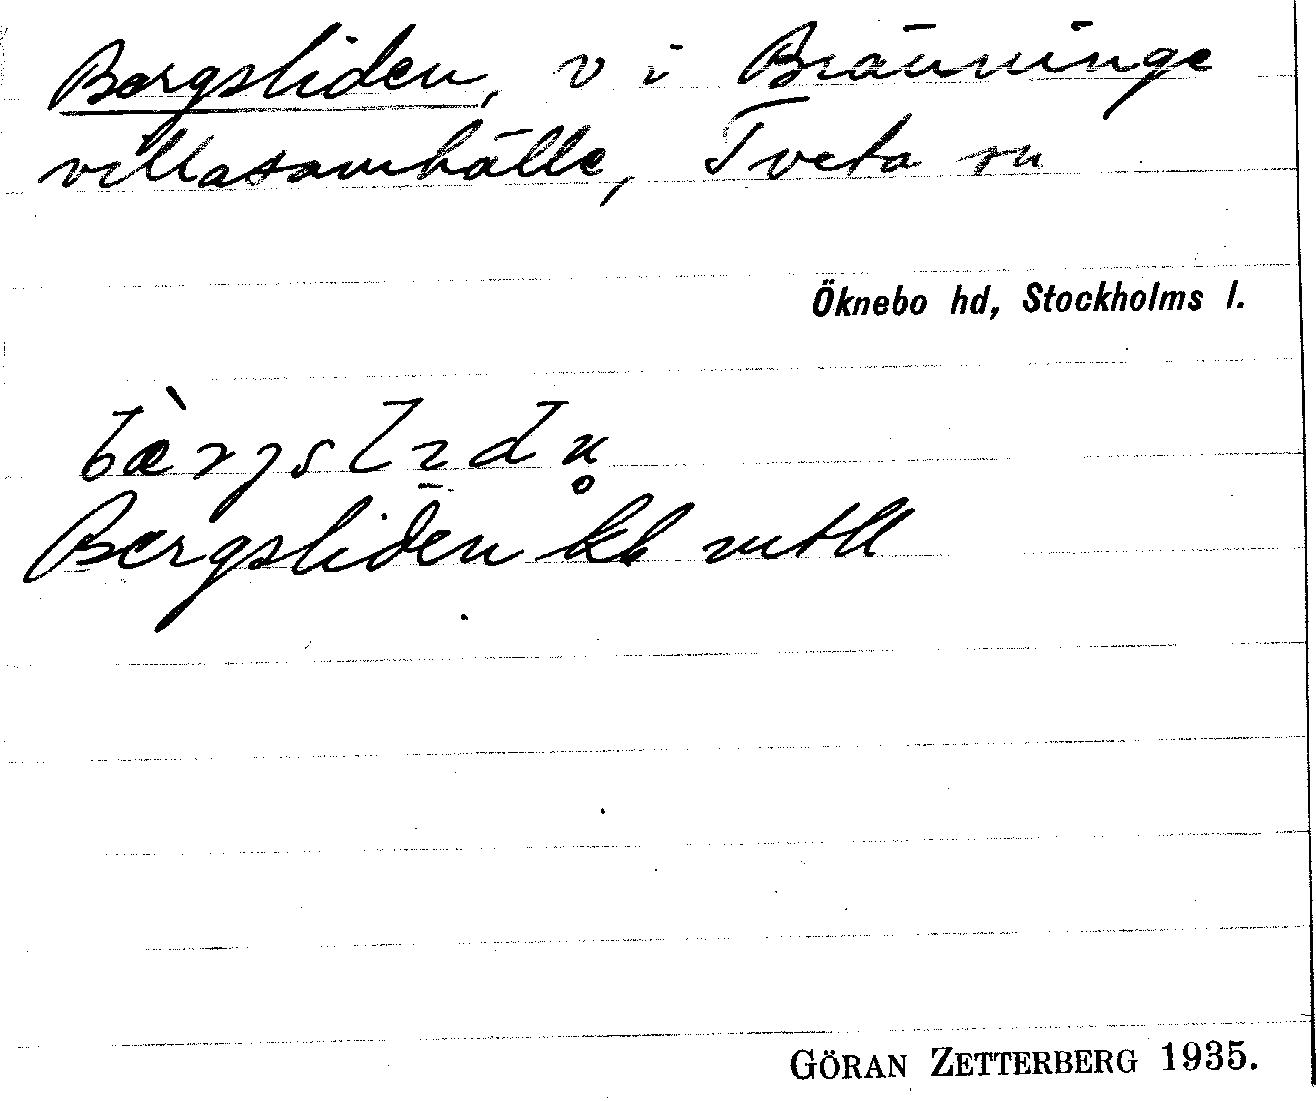 Bergsliden, v i Bränninge
villasamhälle, Tveta sn
Öknebo hd, Stockholms l.
bæ̀rjslidn̥
Bergsliden kb mtll
GÖRAN ZETTERBERG 1935.